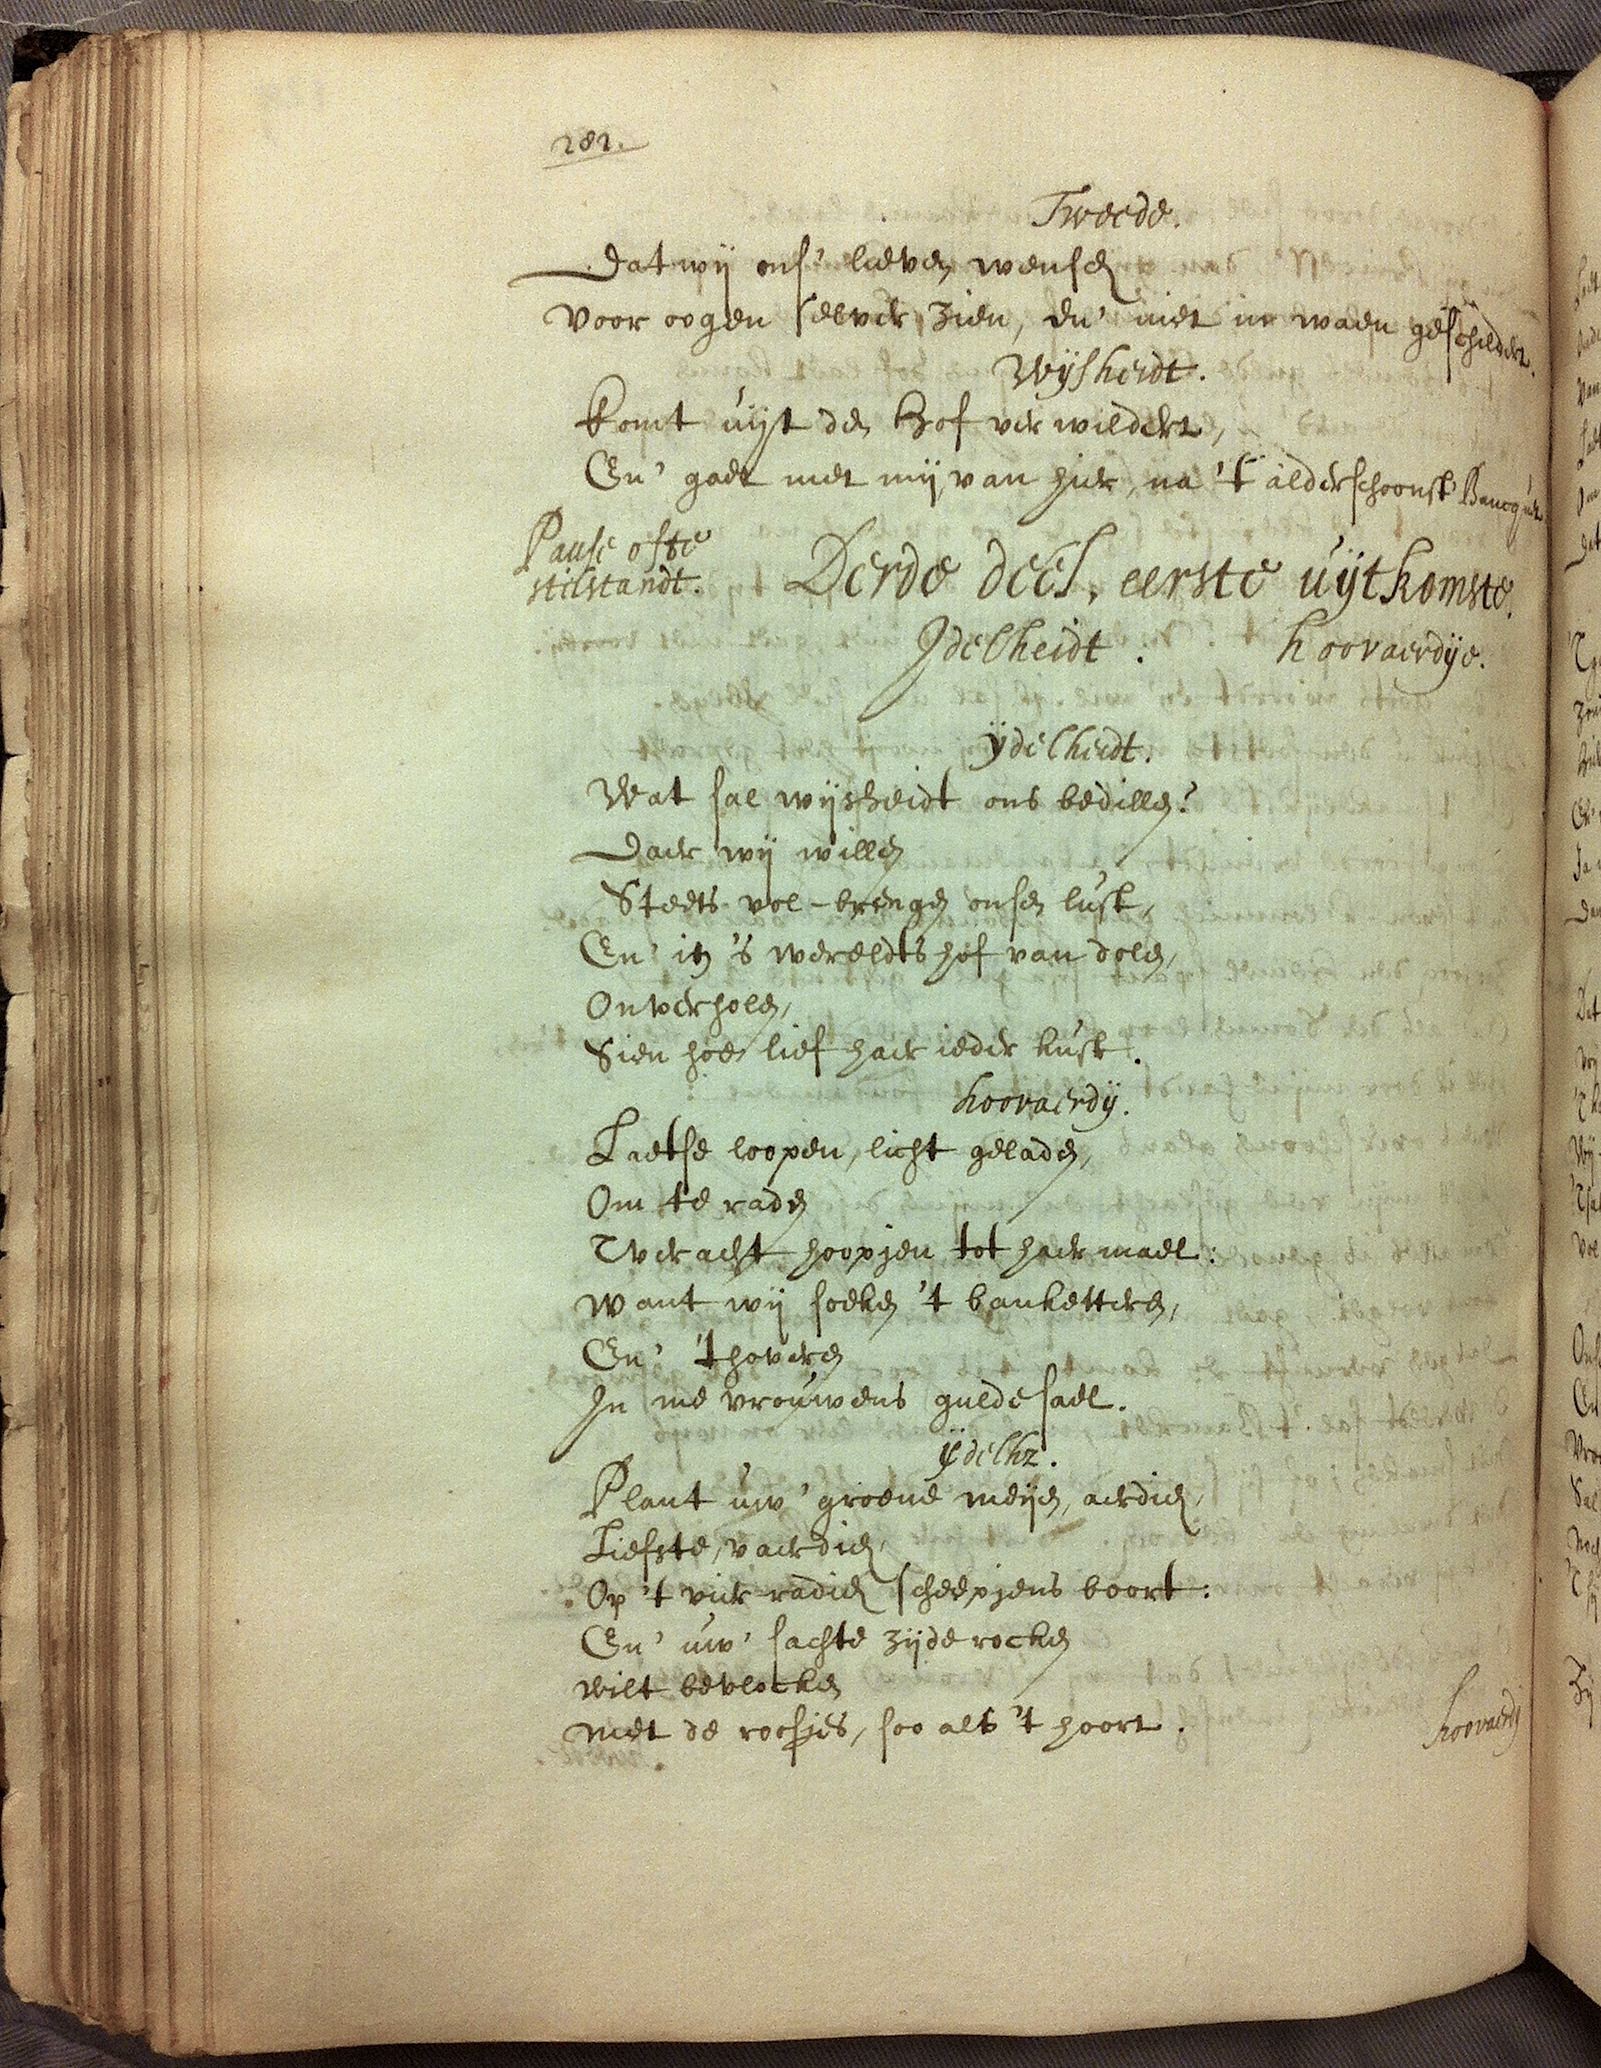 282.
Tweede.
Dat wij ons' lieven wensch
Voor oogen selver zien, en' niet in waen geschildert.
Wijsheidt.
Komt uijt den Hof verwildert,
En' gaet met mij van hier, na 't alderschoonste Bancquet
Pause ofte
stilstandt.
Derde deel, eerste uijtkomste.
Idelheidt. Hoovaerdije.
Ydelheidt.
Wat sal wijsheidt ons bedillen?
Daer wij willen
Steets vol-brengen onsen lust,
En' in 's werelts hof van dolen,
Onverholen,
Sien hoe lief haer ieder kust.
Hoovaerdij.
Laetse loopen, licht geladen,
Om te raden
T veracht hoopjen tot haer mael:
Want wij soeken 't banketteren,
En' 't hoveren
In me vrouwens gulde sael.
ijdelht.
Plant uw' groene meijen, aerdich,
Liefste, vaerdich,
Op 't vier-radich scheepjens boort:
En' uw' sachte zijde rocken
wilt bevlocken
met de roosjes, soo als 't hoort.
hoovaerdij